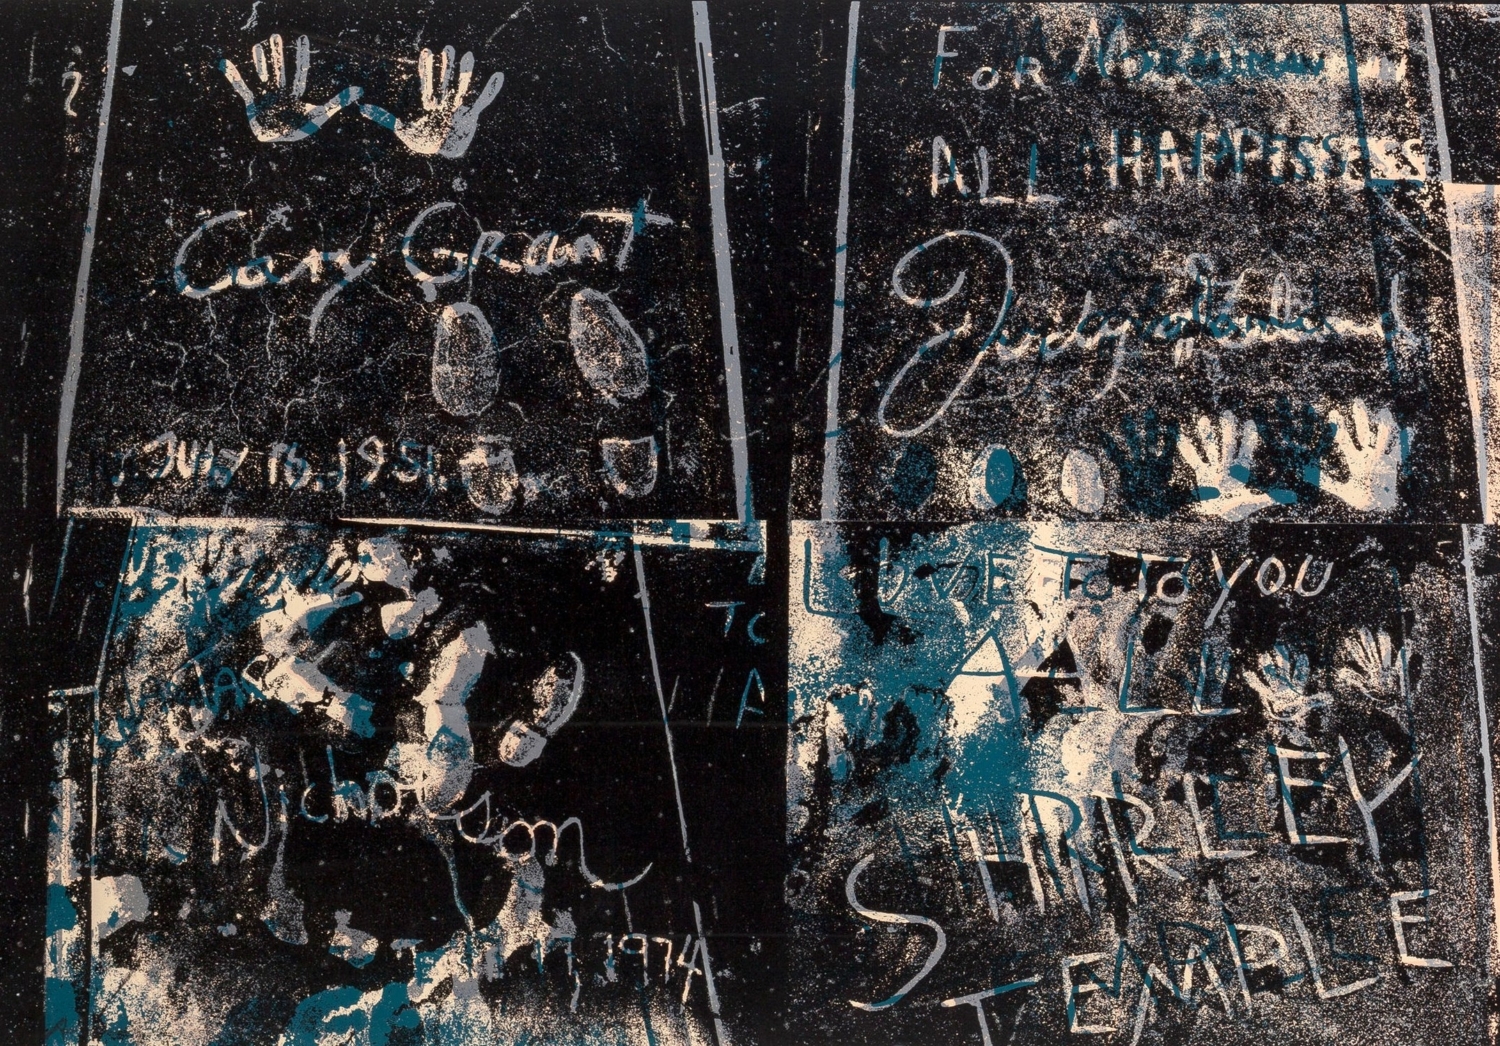 Cary Grant
JULY 16. 1951.
FOR
ALL HAPPINESS
Judy Garland
Jack
Nicholson
1974
TO
A
LOVE TO YOU
ALL
SHIRLEY
TEMPLE